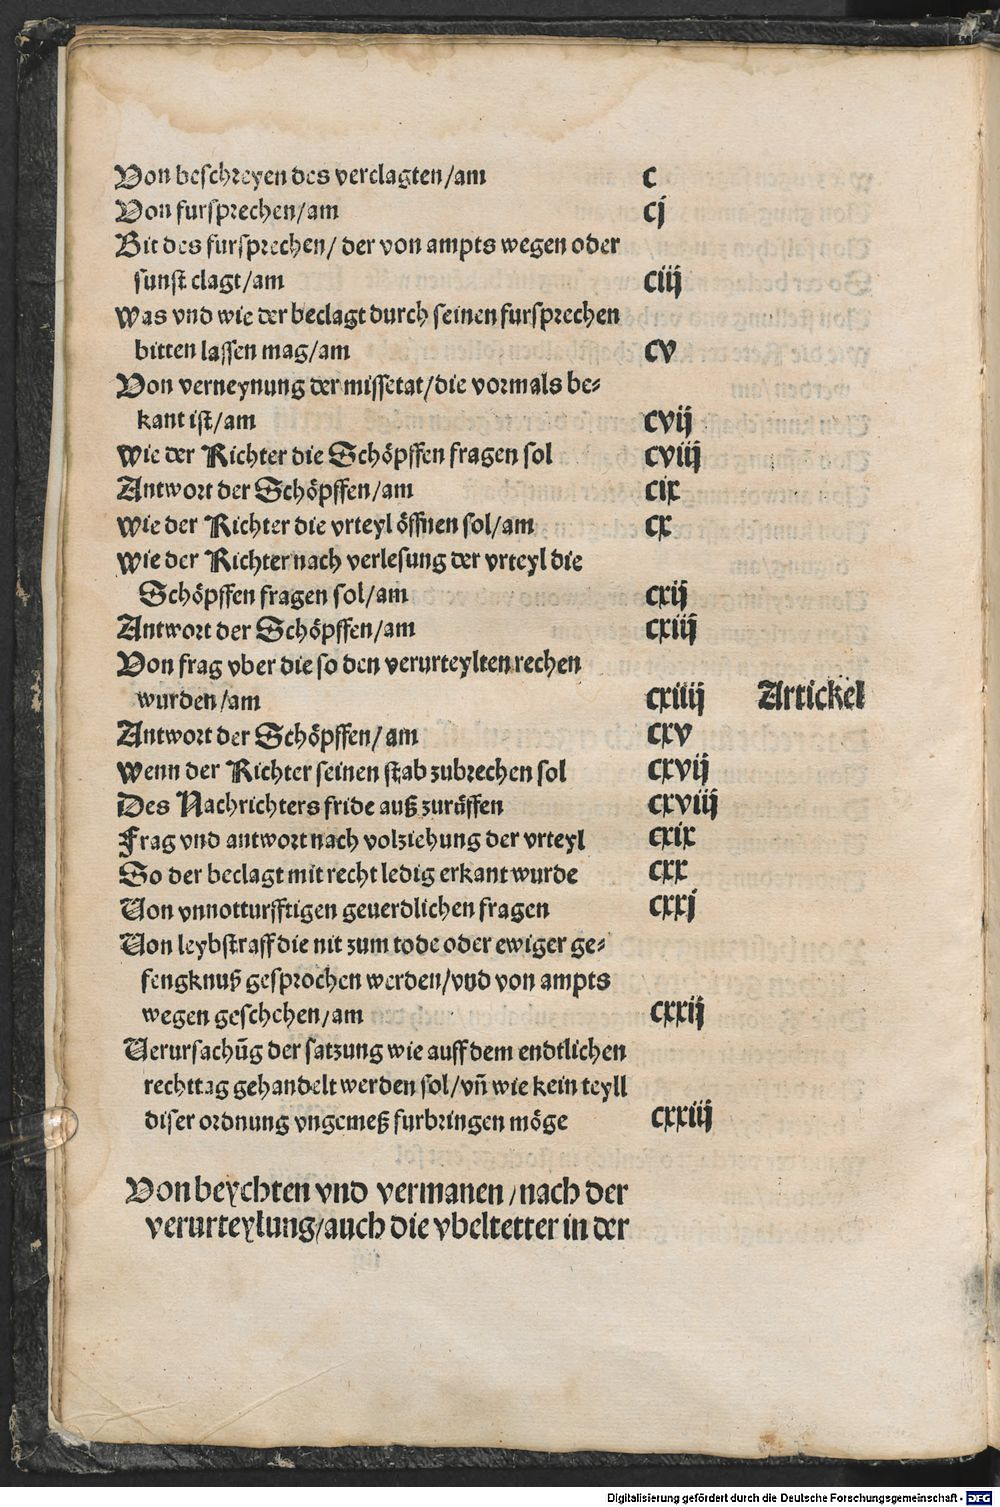 Von beschreyen des verclagten/am c
Von fursprechen/am cj
Bit des fursprechen/ der von ampts wegen oder
sunst clagt/am ciij
Was vnd wie der beclagt durch seinen fursprechen
bitten lassen mag/am cv
Von verneynung der missetat/die vormals be⸗
kant ist/am cvij
Wie der Richter die Schöpffen fragen sol cviij
Antwort der Schöpffen/am cix
Wie der Richter die vrteyl öffnen sol/am cx
Wie der Richter nach verlesung der vrteyl die
Schöpffen fragen sol/am cxij
Antwort der Schöpffen/am cxiij
Von frag vber die so den verurteylten rechen
wurden/am cxiiij Artickel
Antwort der Schöpffen/am cxv
Wenn der Richter seinen stab zubrechen sol cxvij
Des Nachrichters fride auß zurüffen cxviij
Frag vnd antwort nach volziehung der vrteyl cxix
So der beclagt mit recht ledig erkant wurde cxx
Von vnnotturfftigen geuerdlichen fragen cxxj
Von leybstraff die nit zum tode oder ewiger ge⸗
fengknuß gesprochen werden/vnd von ampts
wegen geschehen/am cxxij
Verursachūg der satzung wie auff dem endtlichen
rechttag gehandelt werden sol/vñ wie kein teyll
diser ordnung vngemeß furbringen möge cxxiij
Von beychten vnd vermanen/nach der
verurteylung/auch die vbeltetter in der
Digitalisierung gefördert durch die Deutsche Forschungsgemeinschaft - DFG